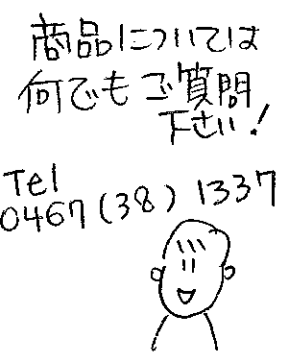 商品については
何でもご質問
下さい!
Tel
0467(38)1337